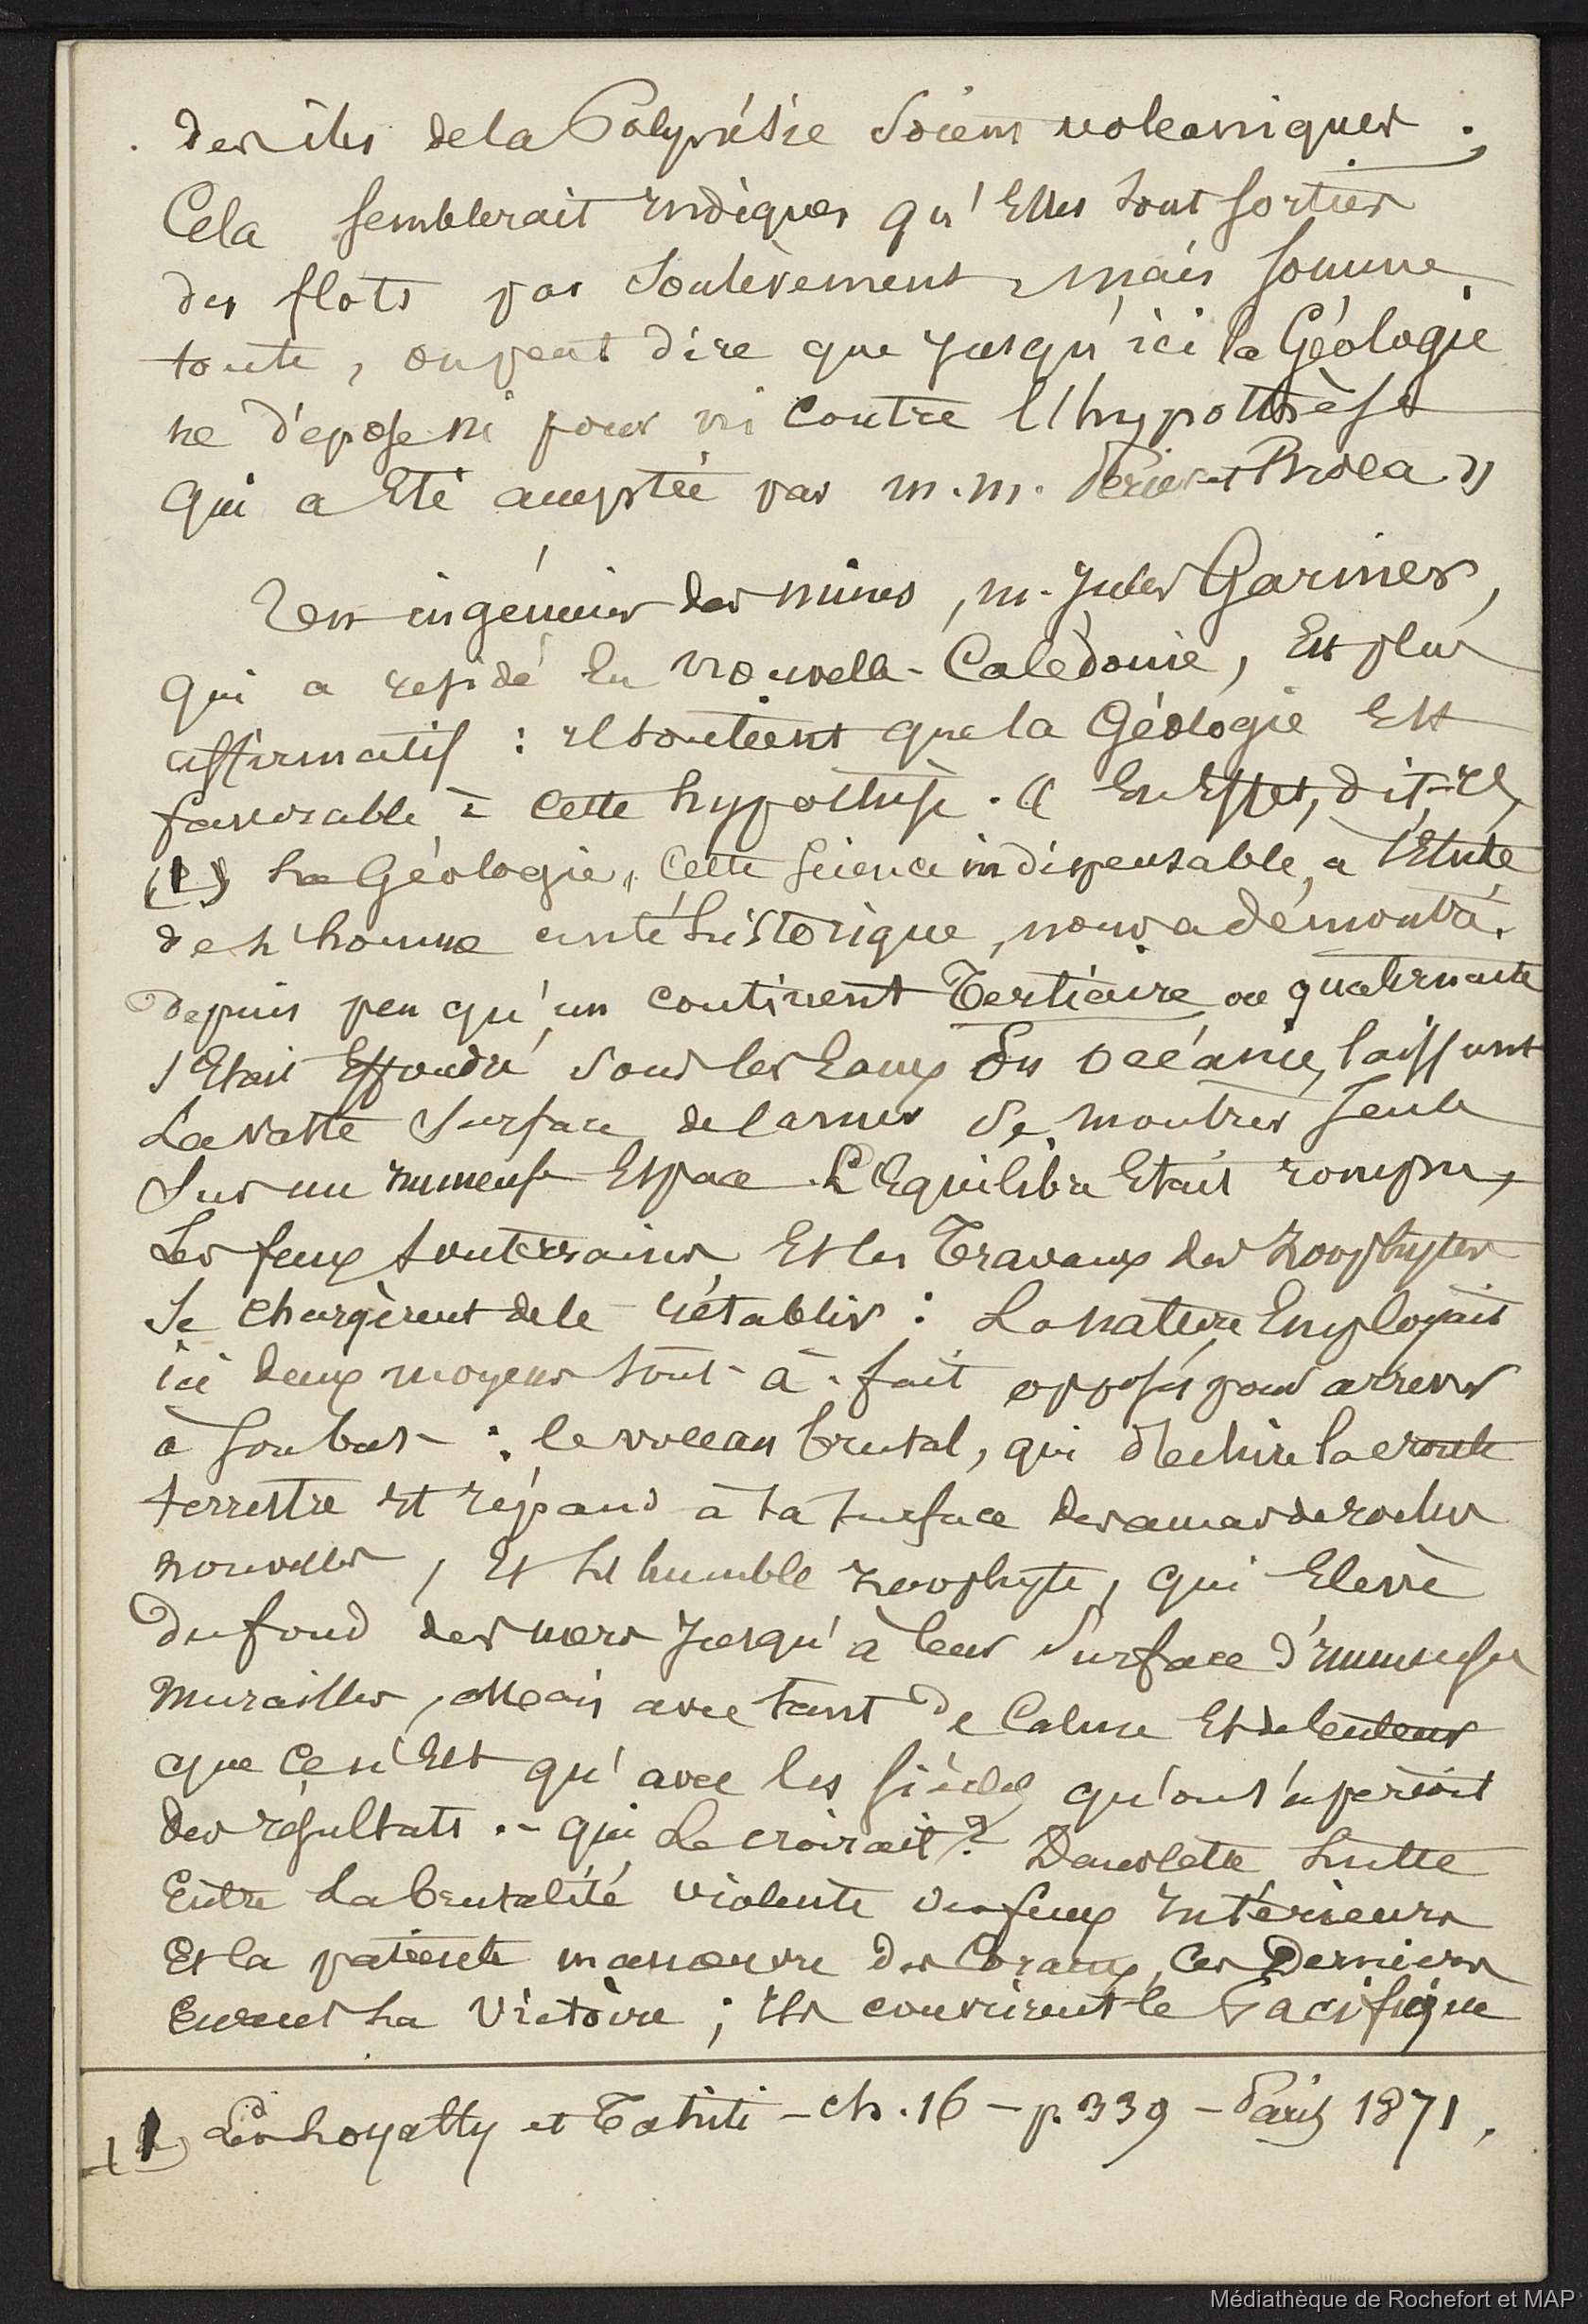 des îles de la Polynésie soient volcaniques ;
Cela semblerait indiquer qu'Elles sont sorties
des flots par Soulèvement, mais somme
toute, on peut dire que jusqu'ici la Géologie
ne dépose ni pour ni contre l'hypothèse
qui a Eté acceptée par m.m. Périer et Broca »
Un ingénieur des mines, m. Jules Garnier,
qui a résidé En Nouvelle-Calédonie, Est plus
affirmatif : il soutient que la Géologie Est
favorable à cette hypothèse. « En Effet, dit-il,
(1) La Géologie, cette science indispensable, à l'Etude
de L'homme antéhistorique, nous a démontré,
depuis peu qu'un continent Tertiaire ou quaternaire
s'Etait Effondré sous les Eaux En Océanie, laissant
La vaste surface de la mer se montrer seule
Sur un immense Espace. L'Equilibre Etait rompu,
Les feux souterrains Et les Travaux des zoophytes
se chargèrent de le rétablir : La nature Employait
ici deux moyens tout-à-fait opposés pour arriver
à son but : le volcan brutal, qui déchire la croute
terrestre Et répand à sa surface des amas de roches
nouvelles, Et L'humble zoophyte, qui Elève
du fond des mers jusqu'à leur surface d'immenses
murailles, Mais avec tant de calme Et de lenteur
que ce n'Est qu'avec les siècles qu'on s'aperçoit
des résultats. - qui Le croirait ? Dans cette Lutte
Entre La brutalité violente des feux intérieurs
Et la patiente manœuvre des Coraux, Ces Derniers
Eurent La Victoire ; ils couvrirent le Pacifique
(1) Les Loyalty et Tahiti - ch. 16 - p. 339 - Paris 1871.
Médiathèque de Rochefort et MAP